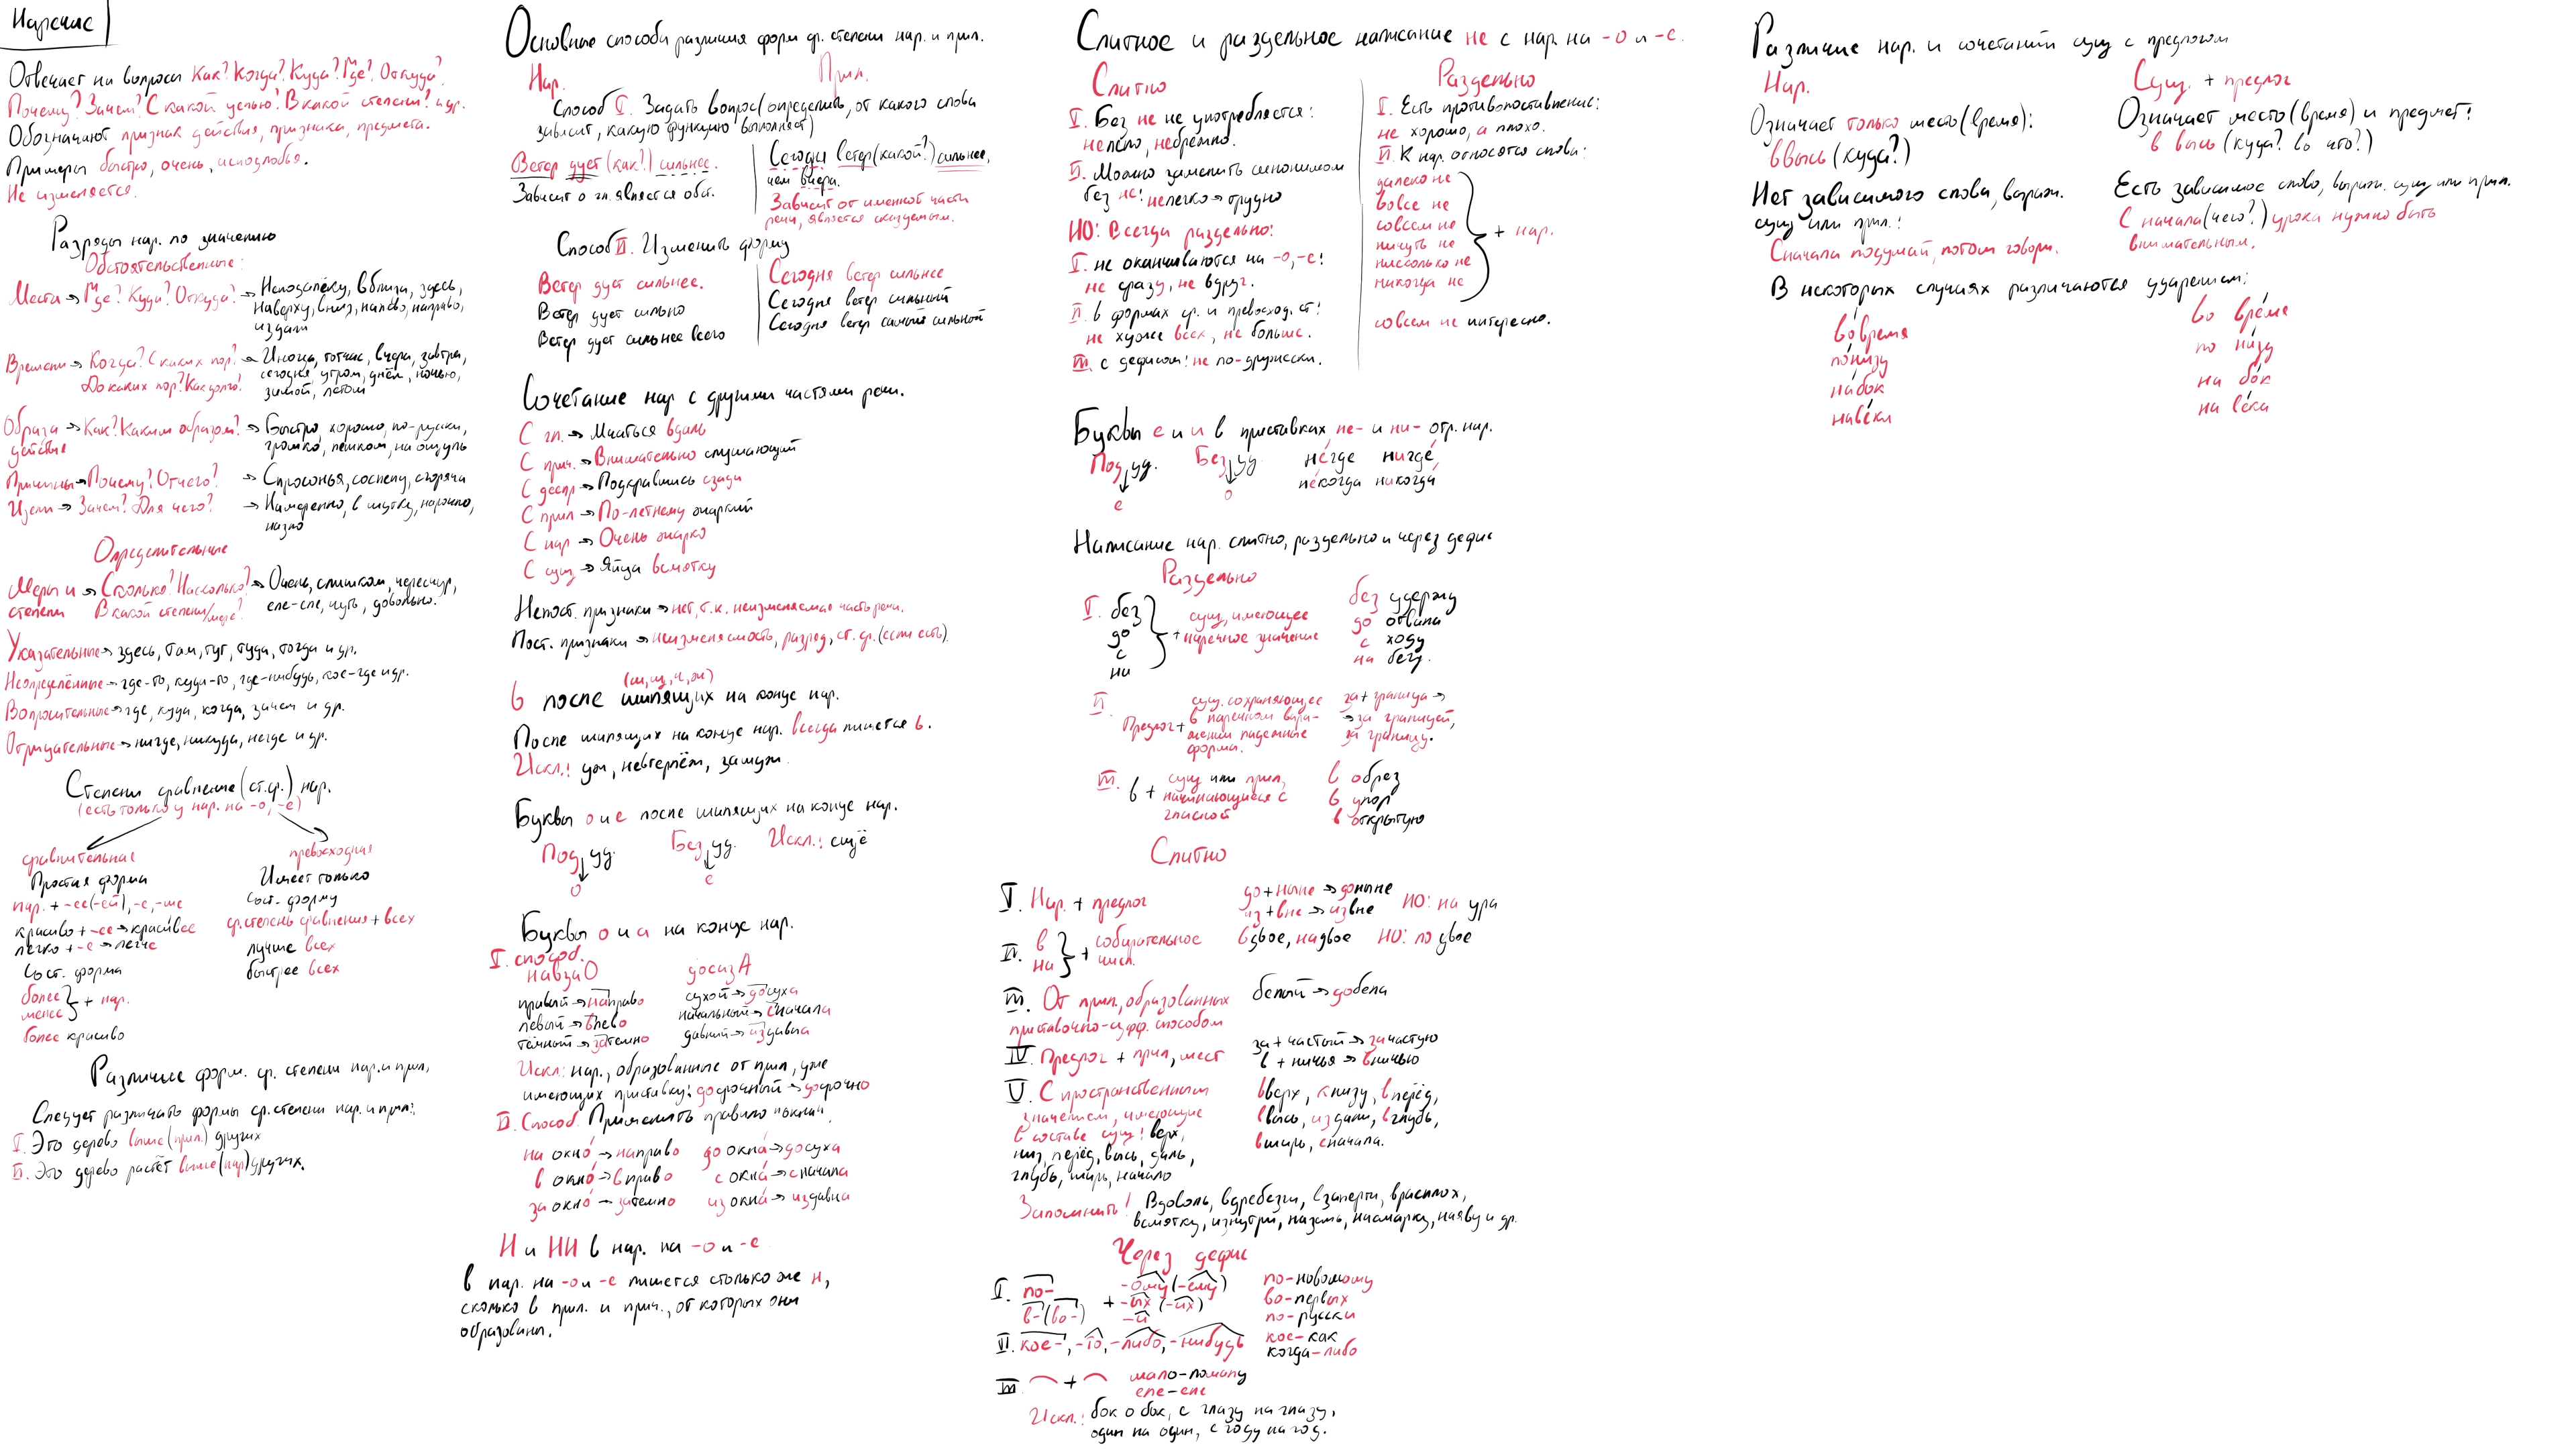 Наречие
Отвечает на вопросы Как? Когда? Куда? Где? Откуда?
Почему? Зачем? С какой целью? В какой степени? и др.
Обозначают признак действия, признака, предмета.
Примеры быстро, очень, исподлобья.
Не изменяется.
Разряды нар. по значению
Обстоятельственные:
Места → Где? Куда? Откуда? → Неподалёку, вблизи, здесь,
наверху, вниз, налево, направо,
издали
Времени → Когда? С каких пор? → Иногда, тотчас, вчера, завтра,
До каких пор? Как долго? сегодня, утром, днём, ночью,
зимой, летом
Образа → Как? Каким образом? → Быстро, хорошо, по-русски,
действия громко, пешком, на ощупь
Причины → Почему? Отчего? → Спросонья, сослепу, сгоряча
Цели → Зачем? Для чего? → Намеренно, в шутку, нарочно,
назло
Определительные
Меры и → Сколько? Насколько? → Очень, слишком, чересчур,
степени В какой степени/мере? еле-еле, чуть, довольно.
Указательные → здесь, там, тут, туда, тогда и др.
Неопределённые → где-то, куда-то, где-нибудь, кое-где и др.
Вопросительные → где, куда, когда, зачем и др.
Отрицательные → нигде, никуда, негде и др.
Степени сравнение (ст.ср.) нар.
(есть только у нар. на -о, -е)
сравнительная превосходная
Простая форма Имеет только
нар. + -ее(-ей), -е, -ше сост. форму
красиво + -ее → красивее ср. степень сравнения + всех
легко + -е → легче лучше всех
Сост. форма быстрее всех
более
менее } + нар.
более красиво
Различие форм. ср. степени нар. и прил.
Следует различать формы ср. степени нар. и прил.:
I. Это дерево выше (прил.) других
II. Это дерево растёт выше (нар) других.
Основные способы различия форм ср. степени нар. и прил.
Нар. Прил.
Способ I. Задать вопрос (определить, от какого слова
зависит, какую функцию выполняет)
Ветер дует (как?) сильнее.
Зависит о гл. является обст.
Сегодня ветер (какой?) сильнее,
чем вчера.
Зависит от именной части
речи, является сказуемым.
Способ II. Изменить форму
Ветер дует сильнее. Сегодня ветер сильнее
Ветер дует сильно Сегодня ветер сильный
Ветер дует сильнее всего Сегодня ветер самый сильный
Сочетание нар с другими частями речи.
С гл. → Мчаться вдаль
С прич. → Внимательно слушающий
С деепр → Подкравшись сзади
С прил → По-летнему жаркий
С нар → Очень жарко
С сущ → Яйца всмятку
Непост. признаки → нет, т.к. неизменяемая часть речи.
Пост. признаки → неизменяемость, разряд, ст. ср. (если есть)
(ш, щ, ч, ж)
Ь после шипящих на конце нар.
После шипящих на конце нар. всегда пишется ь.
Искл.: уж, невтерпёж, замуж
Буквы о и е после шипящих на конце нар.
Под уд. Без уд. Искл.: ещё
о е
Буквы о и а на конце нар.
I. способ.
навзаО досизА
правый → направо сухой → досуха
левый → влево начальный → сначала
тёмный → затемно давний → издавна
Искл: нар., образованные от прил, уже
имеющих приставку: досрочный → досрочно
II. Способ. Применить правило "окна"
на окно → направо до окна → досуха
в окно → вправо с окна → сначала
за окно → затемно из окна → издавна
Н и НН в нар. на -о и -е
в нар. на -о и -е пишется столько же н,
сколько в прил. и прич., от которых они
образованы.
Слитное и раздельное написание не с нар на -о и -е.
Слитно
I. Без не не употребляется:
нелепо, небрежно.
II. Можно заменить синонимом
без не: нелегко → трудно
НО: Всегда раздельно:
I. не оканчиваются на -о, -е:
не сразу, не вдруг.
II. в формах ср. и превосход. ст:
не хуже всех, не больше.
III. с дефисом: не по-дружески.
Раздельно
I. Есть противопоставление:
не хорошо, а плохо.
II. К нар. относятся слова:
далеко не
вовсе не
совсем не
ничуть не
нисколько не
никогда не
+ нар.
совсем не интересно.
Буквы е и и в приставках не- и ни- отр. нар.
Под уд. Без уд не́где нигде́
е о не́когда никогда́
Написание нар. слитно, раздельно и через дефис
Раздельно
I. без
до
с
на
+ сущ, имеющее
наречное значение
без удержу
до отвала
с ходу
на бегу.
II.
Предлог + сущ. сохраняющее
в наречном выра-
жении падежные
форма.
за + граница →
→ за границей,
за границу.
III. в + сущ или прил,
начинающиеся с
гласной
в обрез
в упор
в открытую
Слитно
I. Нар. + предлог до + ныне → доныне
из + вне → извне НО: на ура
II. в
на } + собирательное
числ. вдвое, надвое НО: по двое
III. От прил, образованных белый → добела
приставочно-суфф. способом
IV. Предлог + прил, мест за + частый → зачастую
в + ничья → вничью
V. С пространственным вверх, книзу, вперёд,
значением, имеющие ввысь, издали, вглубь,
в составе сущ: верх, вширь, сначала.
низ, перёд, высь, даль,
глубь, ширь, начало
Запомнить! Вдоволь, вдребезги, взаперти, врасплох,
всмятку, изнутри, наземь, насмарку, наяву и др.
Через дефис
I. по- + -ому (-ему) по-новомому
в- (во-) -ых (-их) во-первых
-и по-русски
II. кое-, -то, -либо, -нибудь кое-как
когда-либо
III + мало-помалу
еле-еле
Искл.: бок о бок, с глазу на глазу,
один на один, с году на год.
Различие нар. и сочетаний сущ с предлогом
Нар. Сущ. + предлог
Означает только место (время): Означает место (время) и предмет:
ввысь (куда?) в высь (куда? во что?)
Нет зависимого слова, выраж. Есть зависимое слово, выраж. сущ или прил.
сущ или прил.: С начала (чего?) урока нужно быть
Сначала подумай, потом говори. внимательным.
В некоторых случаях различаются ударением:
во́время во вре́мя
по́низу по ни́зу
на́бок на бо́к
наве́ки на ве́ка